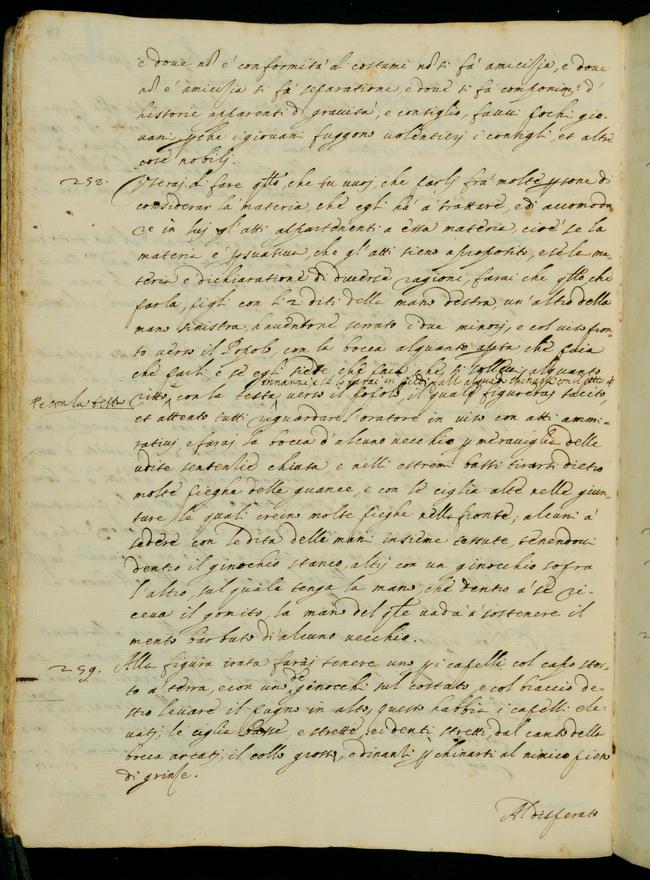 e dove nō è conformità di costumi nō si fà amicitia, e dove
nō è amicitia si fà separatione, e dove si fà componim.ti d'
historie apparenti di gravità, e consiglio, favvi pochi gio-
vani, pche i giovani fuggono volentieri i consigli, et altre
cose nobili.
252. Userai di fare qllo, che tu vuoj, che parli frà molte psone di
considerar la materia, che egli hà a trattare, e di accomoda-
re in luj gl'atti appartenenti a essa materia, cioè se la
materia è psuativa, che gl'atti sieno a proposito, e se la ma-
teria e dichiaratione di diverse ragioni, farai che qllo che
parla, pigli con li 2 diti della mano destra, un' altro della
mano sinistra, havendone serrato i due minorj, e col viso pron-
to verso il Popolo, con la bocca alquanto apta che paia
che parli e se egli siede che paia che si sollevi alquanto
innanzi e se lo farai in piedi fallo alquanto chinarsi con il petto #
# e con la testa
ritto e con la testa verso il popolo, il quale figurerai tacito,
et attento tutti riguardare l'oratore in viso con atti ammi-
rativj, e farai la bocca d'alcuno vecchio p meraviglia delle
udite sentenzie chiusa e nelli estremi bassi tirarsi dietro
molte pieghe delle guance, e con le ciglia alte nelle giun-
ture le quali creino molte pieghe nella fronte; alcuni à
sedere con le dita delle mani insieme tessute, tenendovi
dentro il ginochio stanco, altrj con un ginocchio sopra
l'altro, sul quale tenga la mano, che dentro à se ri-
ceva il gomito, la mano del qle vada à sostenere il
mento barbuto di alcuno vecchio.
259. Alla figura irata farai tenere uno p i capelli col capo stor-
to a terra, e con uno de ginocchi sul costato, e col braccio de-
stro levare il pugno in alto; questo habbia i capelli ele-
vatj, le ciglia basse, e strette, ei denti stretti, dal canto della
bocca arcatj, il collo grosso, e dinanzi p chinarsi al nimico pieno
di grinze.
Al disperato